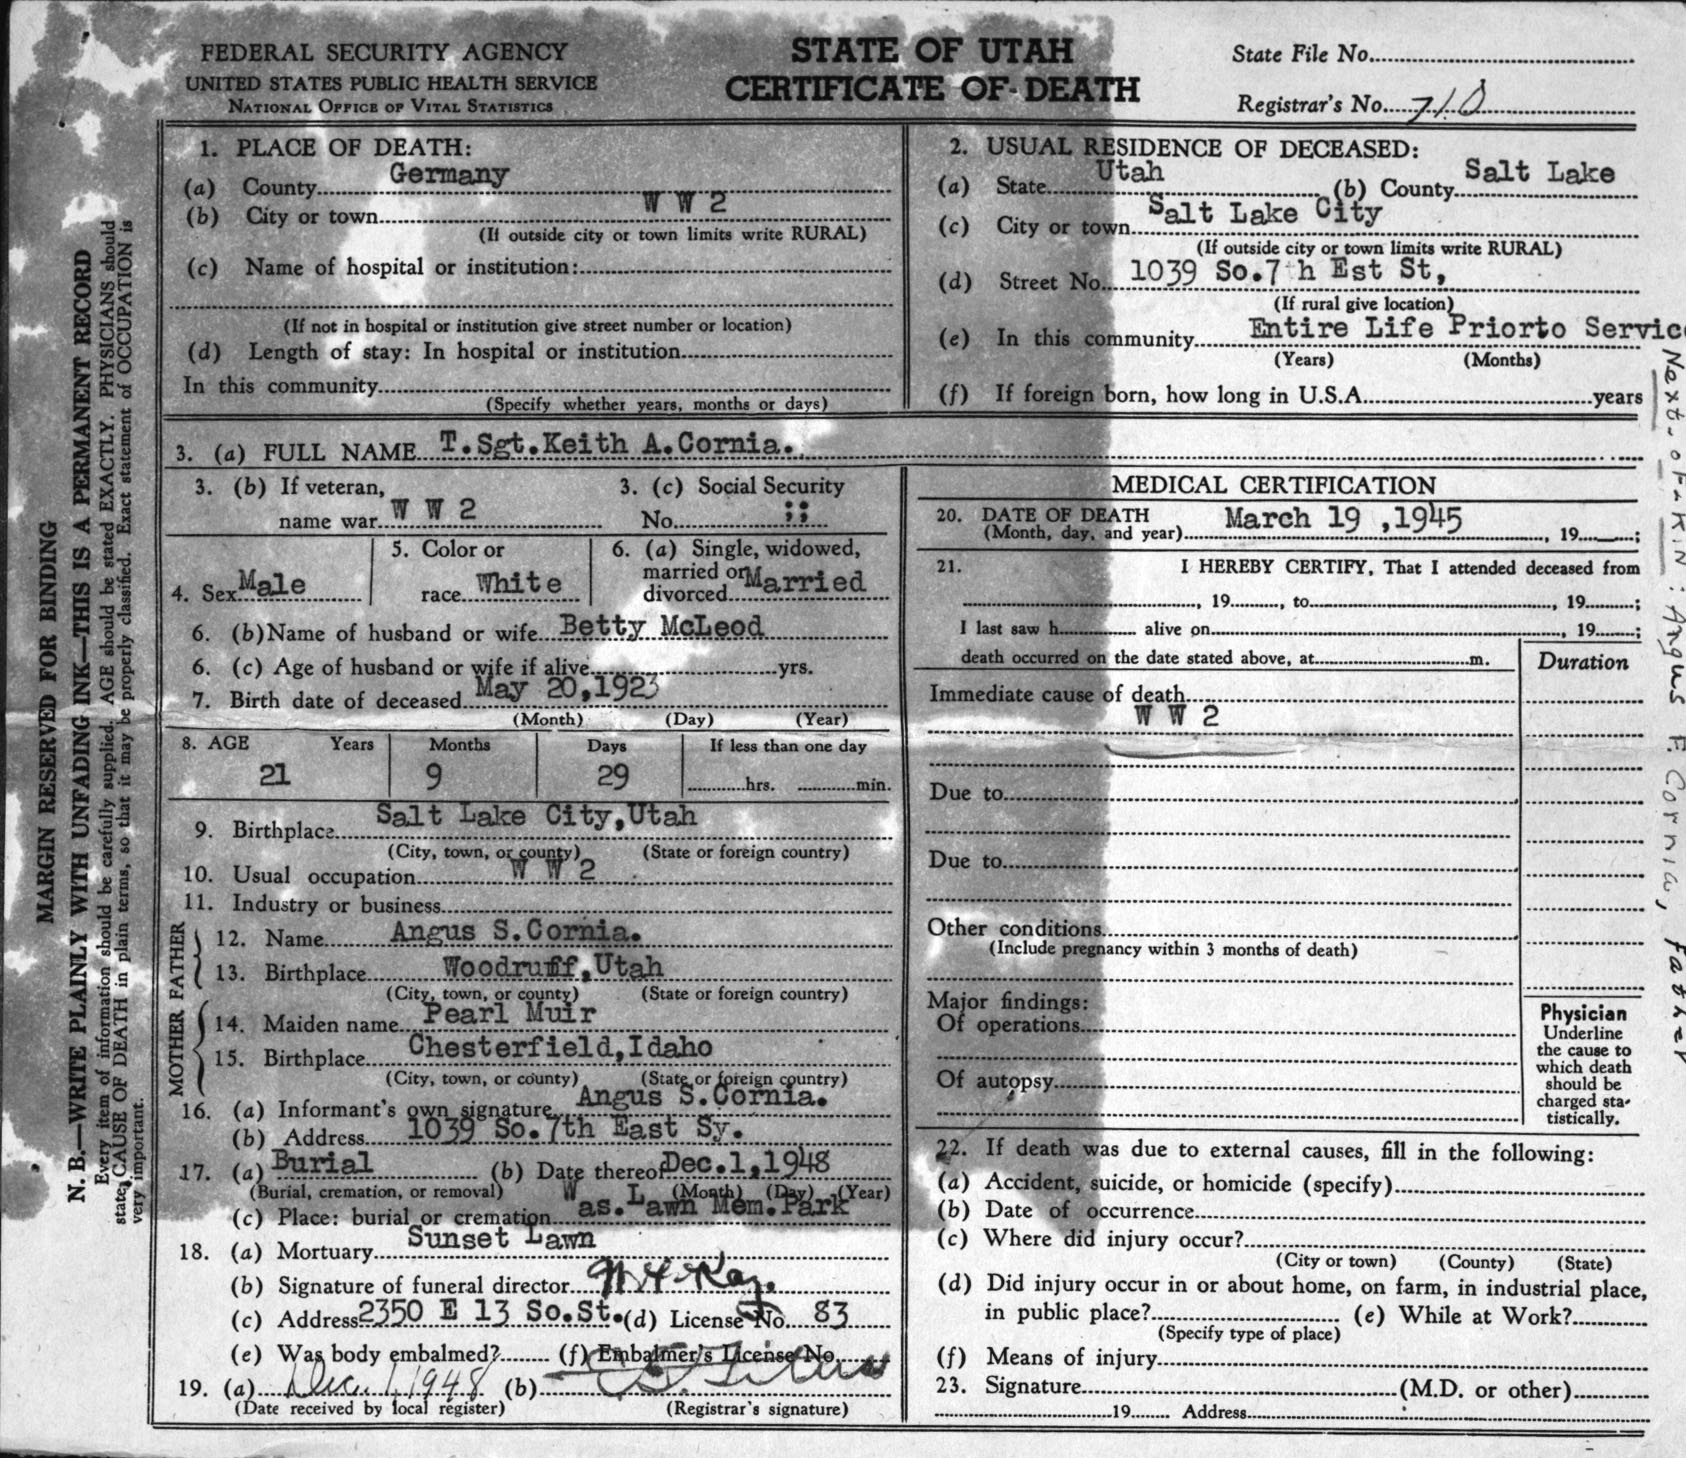 FEDERAL SECURITY AGENCY
UNITED STATES PUBLIC HEALTH SERVICE
NATIONAL OFFICE OF VITAL STATISTICS
STATE OF UTAH
CERTIFICATE OF DEATH
State File No.
Registrar's No. 710
MARGIN RESERVED FOR BINDING
N. B.—WRITE PLAINLY WITH UNFADING INK—THIS IS A PERMANENT RECORD
Every item of information should be carefully supplied. AGE should be stated EXACTLY. PHYSICIANS should
state CAUSE OF DEATH in plain terms, so that it may be properly classified. Exact statement of OCCUPATION is
very important.
1. PLACE OF DEATH:
(a) County Germany
(b) City or town W W 2
(If outside city or town limits write RURAL)
(c) Name of hospital or institution:
(If not in hospital or institution give street number or location)
(d) Length of stay: In hospital or institution
In this community
(Specify whether years, months or days)
2. USUAL RESIDENCE OF DECEASED:
(a) State Utah (b) County Salt Lake
(c) City or town Salt Lake City
(If outside city or town limits write RURAL)
(d) Street No. 1039 So.7th Est St,
(If rural give location)
(e) In this community Entire Life Priorto Servic
(Years) (Months)
(f) If foreign born, how long in U.S.A. years
3. (a) FULL NAME T.Sgt.Keith A.Cornia.
3. (b) If veteran,
name war W W 2
3. (c) Social Security
No. ;;
4. Sex Male
5. Color or
race White
6. (a) Single, widowed,
married or
divorced Married
6. (b) Name of husband or wife Betty McLeod
6. (c) Age of husband or wife if alive yrs.
7. Birth date of deceased May 20,1923
(Month) (Day) (Year)
8. AGE Years Months Days If less than one day
21 9 29 hrs. min.
9. Birthplace Salt Lake City,Utah
(City, town, or county) (State or foreign country)
10. Usual occupation W W 2
11. Industry or business
FATHER
12. Name Angus S.Cornia.
13. Birthplace Woodruff,Utah
(City, town, or county) (State or foreign country)
MOTHER
14. Maiden name Pearl Muir
15. Birthplace Chesterfield,Idaho
(City, town, or county) (State or foreign country)
16. (a) Informant's own signature Angus S.Cornia.
(b) Address 1039 So.7th East Sy.
17. (a) Burial (b) Date thereof Dec.1,1948
(Burial, cremation, or removal) (Month) (Day) (Year)
(c) Place: burial or cremation Was.Lawn Mem.Park
18. (a) Mortuary Sunset Lawn
(b) Signature of funeral director
(c) Address 2350 E 13 So.St. (d) License No. 83
(e) Was body embalmed? (f) Embalmer's License No.
19. (a) Dec. 1, 1948 (b)
(Date received by local register) (Registrar's signature)
MEDICAL CERTIFICATION
20. DATE OF DEATH
(Month, day, and year) March 19 ,1945 , 19 ;
21. I HEREBY CERTIFY, That I attended deceased from
, 19 , to , 19 ;
I last saw h alive on , 19 ;
death occurred on the date stated above, at m.
Duration
Immediate cause of death
W W 2
Due to
Due to
Other conditions
(Include pregnancy within 3 months of death)
Major findings:
Of operations
Of autopsy
Physician
Underline
the cause to
which death
should be
charged sta-
tistically.
22. If death was due to external causes, fill in the following:
(a) Accident, suicide, or homicide (specify)
(b) Date of occurrence
(c) Where did injury occur?
(City or town) (County) (State)
(d) Did injury occur in or about home, on farm, in industrial place,
in public place? (e) While at Work?
(Specify type of place)
(f) Means of injury
23. Signature (M.D. or other)
19 Address
Next-of-Kin: Angus F. Cornia, Father